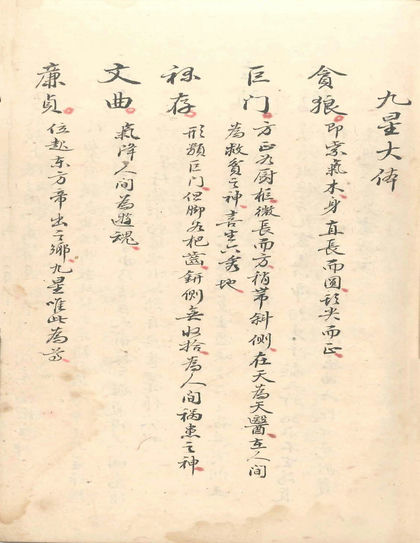 九星大体
貪狼 即紫氣木身直長而圓頭尖而正
巨门 方正为厨柜微長而方稍帶斜側在天為天醫在人间
為救貧之神喜生六秀地
禄存 形類巨门但脚如把齒餅側無收拾為人间禍患之神
文曲 氣降人间為遊魂
廉贞 位起东方帝出之鄉九星唯此為尊